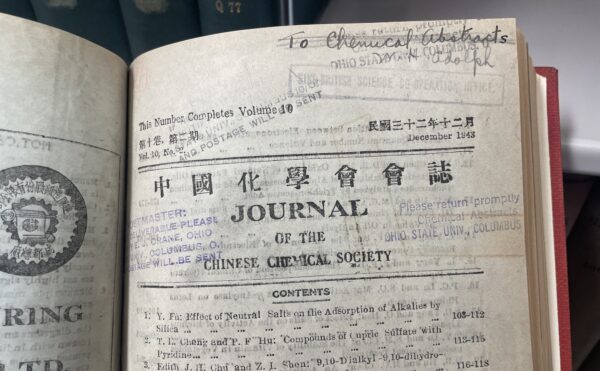 Q 77
To Chemical Abstracts
OHIO STATE
COLUMBUS.
Adolph
SINO-BRITISH SCIENCE CO-OPERATION OFFICE
This Number Completes Volume 10
AND POSTAGE WILL BE SENT
第十卷，第二期
Vol. 10, No. 2
民國三十二年十二月
December 1943
中國化學會會誌
JOURNAL
OF THE
CHINESE CHEMICAL SOCIETY
POSTMASTER:
PLEASE
CRANE, OHIO
COLUMBUS, O.
WILL BE SENT
Please return promptly
Chemical Abstracts
OHIO STATE UNIV., COLUMBUS
CONTENTS
1. Y. Fu: Effect of Neutral Salts on the Adsorption of Alkalies by
Silica .. .. .. .. 103-112
2. T. L. Chang and P. F. Hu: Compounds of Cupric Sulfate with
Pyridine... .. .. .. 112-115
3. Edith J. H. Chu and Z. I. Shen: 9,10-Dialkyl-9,10-dihydro-
116-118
RING
LTD